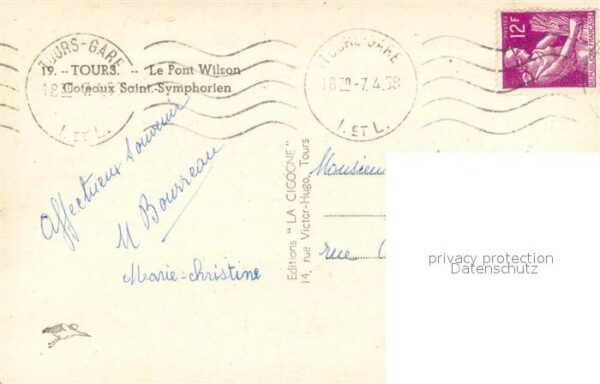 TOURS-GARE
18 30 -7.4.58
I. ET L.
TOURS-GARE
18 30 -7.4.58
I. ET L.
12F
POSTES
REPUBLIQUE FRANÇAISE
19. -- TOURS. -- Le Pont Wilson
Coteaux Saint-Symphorien
Affectueux souvenir
M Bourreau
Marie-christine
Editions "LA CIGOGNE"
14, rue Victor-Hugo, Tours
Monsieur
rue
privacy protection
Datenschutz